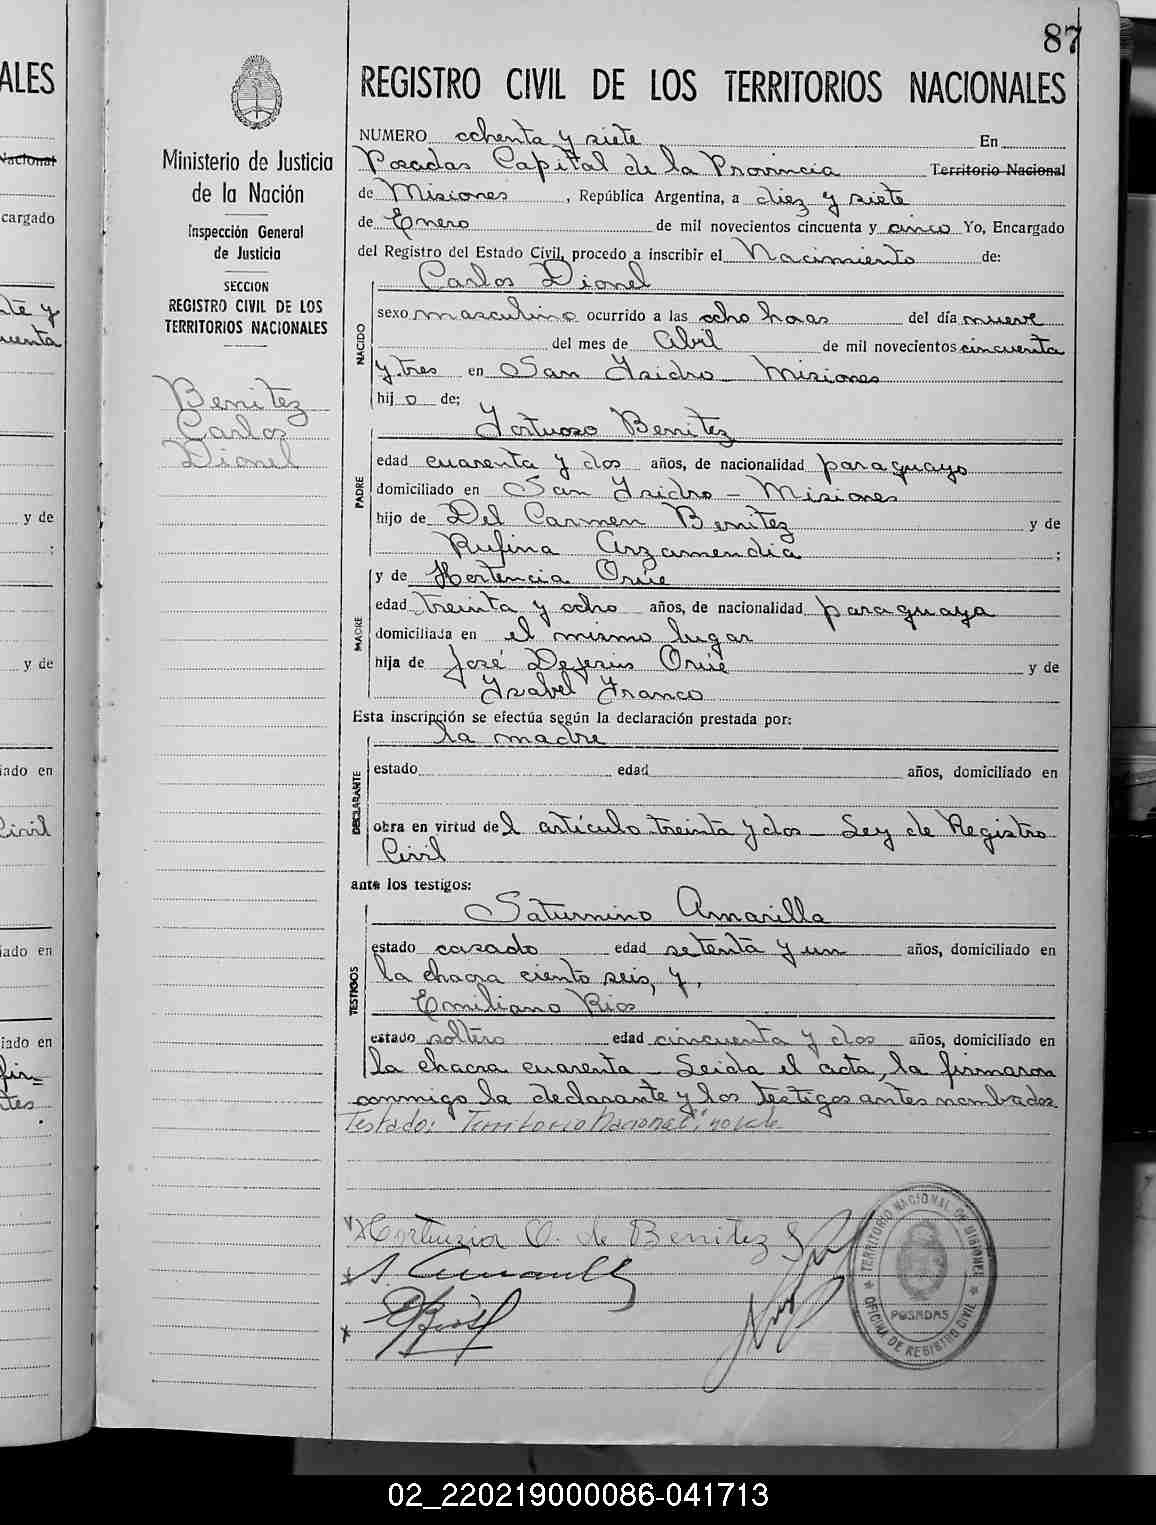 87
ALES
REGISTRO CIVIL DE LOS TERRITORIOS NACIONALES
Ministerio de Justicia
de la Nación
Inspección General
de Justicia
SECCION
REGISTRO CIVIL DE LOS
TERRITORIOS NACIONALES
Benitez
Carlos
Dionel
NUMERO ochenta y siete En
Posadas Capital de la Provincia Territorio Nacional
de Misiones, República Argentina, a diez y siete
de Enero de mil novecientos cincuenta y cinco Yo, Encargado
del Registro del Estado Civil, procedo a inscribir el Nacimiento de:
Carlos Dionel
NACIDO
sexo masculino ocurrido a las ocho horas del día nueve
del mes de Abril de mil novecientos cincuenta
y tres en San Ysidro Misiones
hijo de;
Fortuoso Benitez
PADRE
edad cuarenta y dos años, de nacionalidad paraguayo
domiciliado en San Ysidro - Misiones
hijo de Del Carmen Benitez y de
Rufina Arzamendia ;
y de Hortencia Orué
MADRE
edad treinta y ocho años, de nacionalidad paraguaya
domiciliada en el mismo lugar
hija de José Dejesús Orué y de
Ysabel Franco
Esta inscripción se efectúa según la declaración prestada por:
la madre
DECLARANTE
estado edad años, domiciliado en
obra en virtud del artículo treinta y dos - Ley de Registro
Civil
ante los testigos:
Saturnino Amarilla
TESTIGOS
estado casado edad setenta y un años, domiciliado en
la chacra ciento seis, y,
Emiliano Rios
estado soltero edad cincuenta y dos años, domiciliado en
la chacra cuarenta - Leida el acta, la firmaron
conmigo la declarante y los testigos antes nombrados.
Testado: "Territorio Nacional", no vale
Hortencia O. de Benitez
TERRITORIO NACIONAL DE MISIONES
POSADAS
OFICINA DE REGISTRO CIVIL
02_220219000086-041713